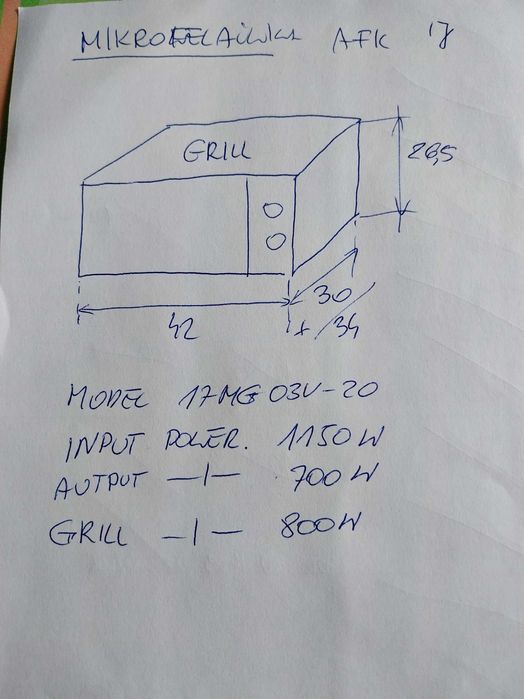 MIKROFELAÜWKA AFK 17
GRILL
26,5
30
42
34
MODEL 17MG 03V-20
INPUT POWER. 1150W
AUTPUT —|— 700W
GRILL —|— 800W